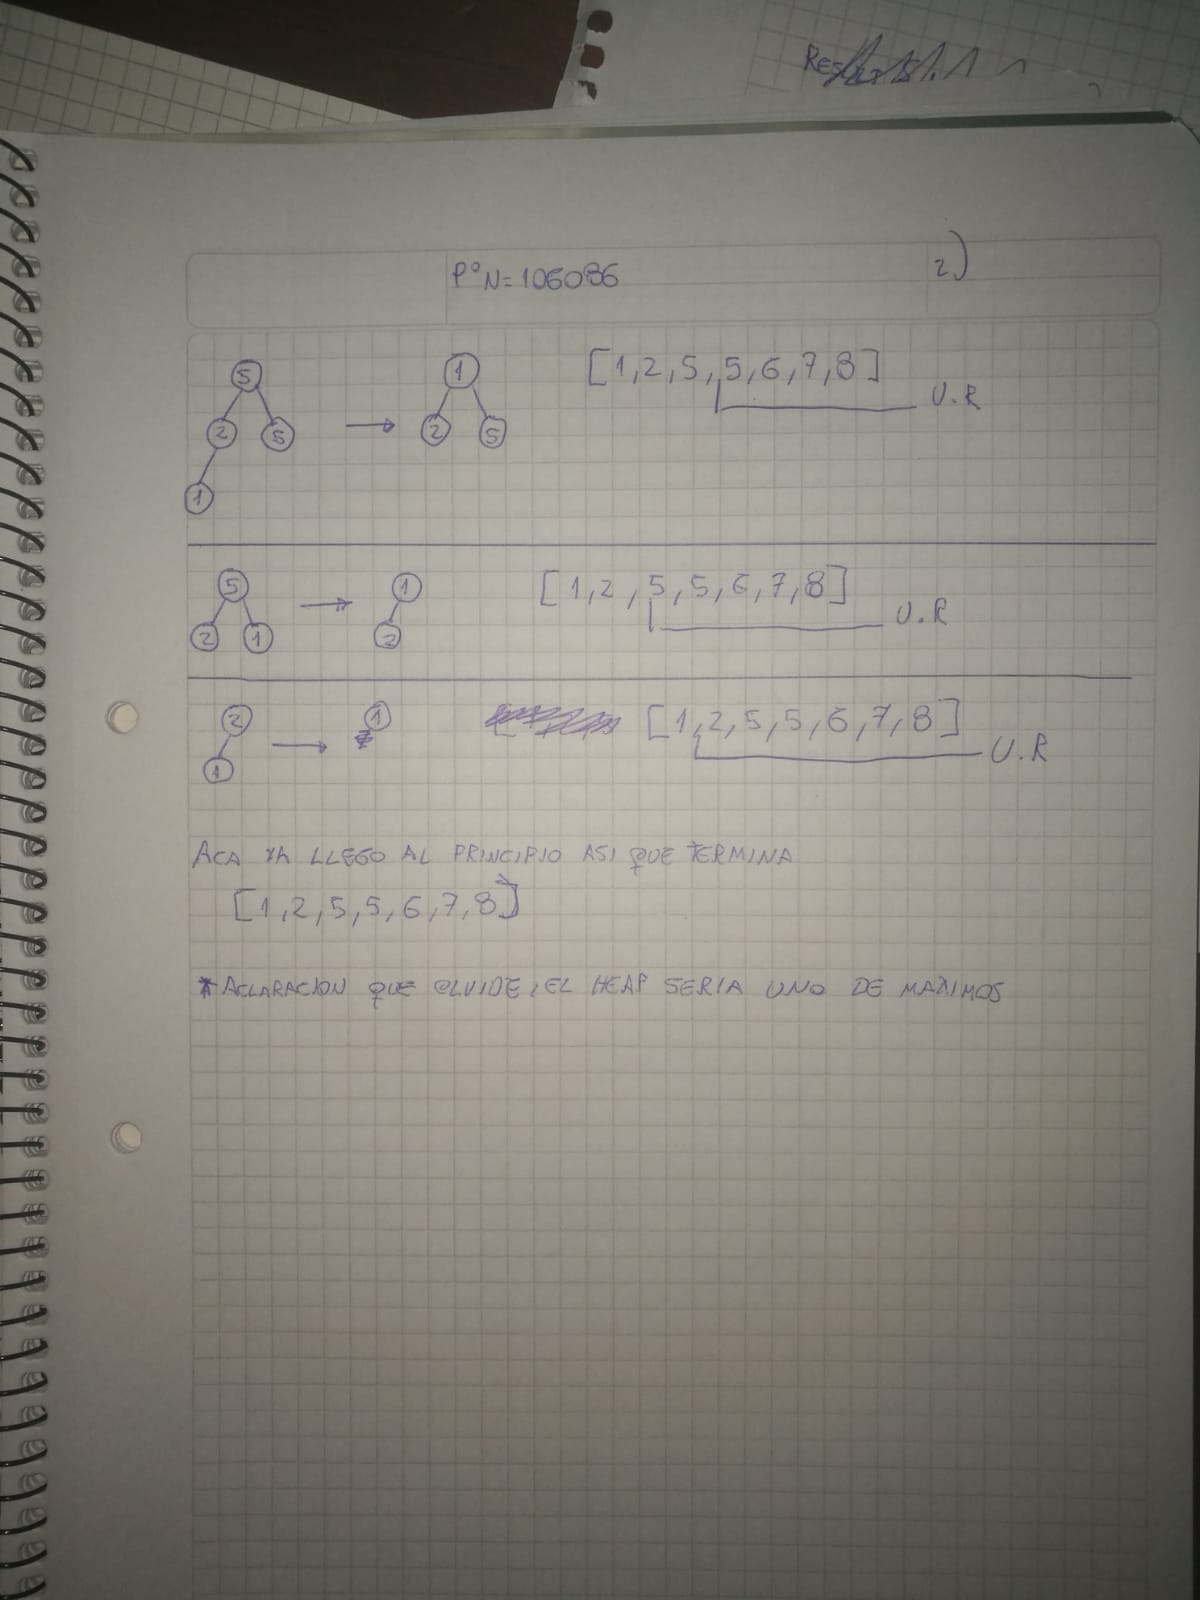 P°N=106086
2)
5
1
[1,2,5,5,6,7,8]
U.R
2 5
2 5
1
5
1
[1,2,5,5,6,7,8]
U.R
2 1
2
2
1
[1,2,5,5,6,7,8]
U.R
1
ACA YA LLEGO AL PRINCIPIO ASI QUE TERMINA
[1,2,5,5,6,7,8]
*ACLARACION QUE OLVIDE, EL HEAP SERIA UNO DE MAXIMOS